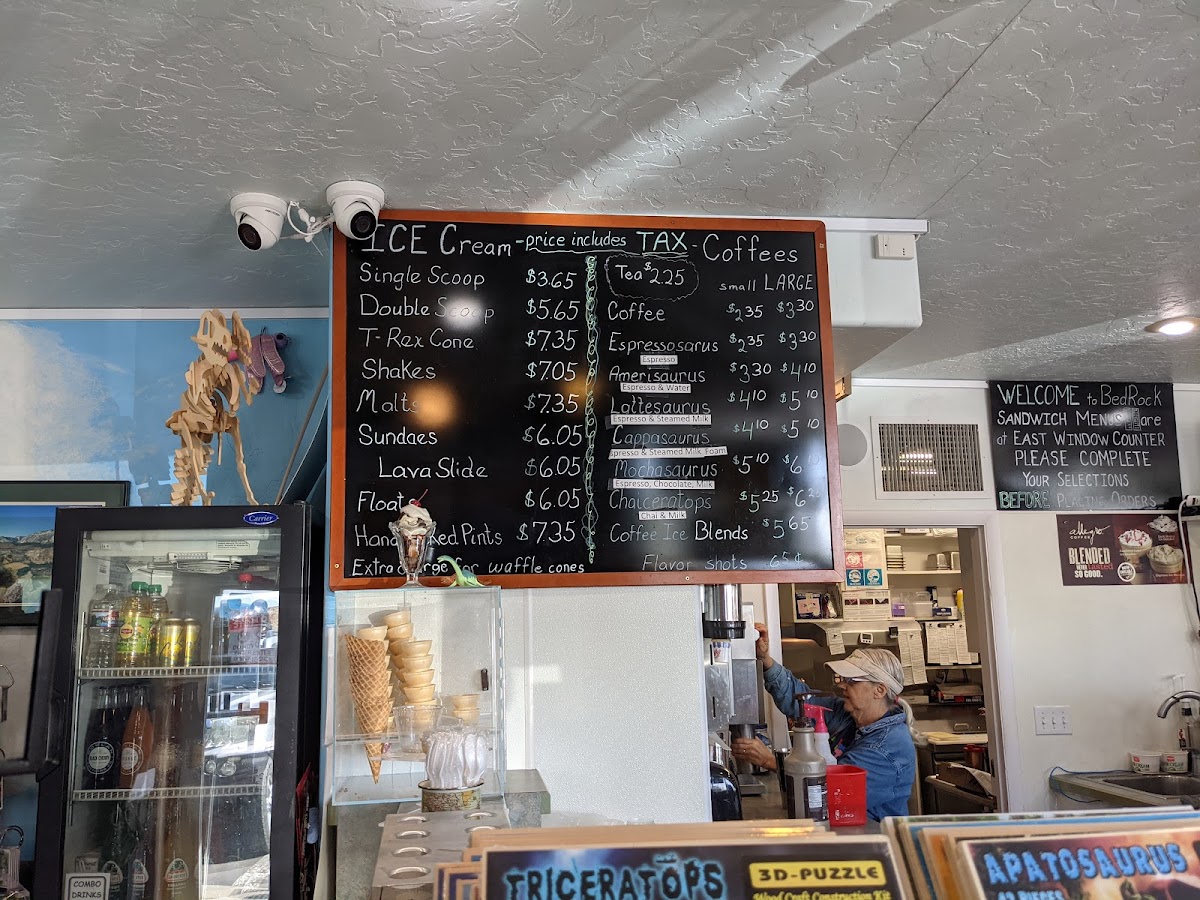 ICE Cream - price includes TAX - Coffees
Single Scoop $3.65
Double Scoop $5.65
T-Rex Cone $7.35
Shakes $7.05
Malts $7.35
Sundaes $6.05
Lava Slide $6.05
Floats $6.05
Pints $7.35
Extra for waffle cones
Tea $2.25
small LARGE
Coffee $2.35 $3.30
Espressosarus $2.35 $3.30
Espresso
Amerisaurus $3.30 $4.10
Espresso & Water
Lattesaurus $4.10 $5.10
Espresso & Steamed Milk
Cappasaurus $4.10 $5.10
spresso & Steamed Milk Foam
Mochasaurus $5.10
Espresso, Chocolate, Milk
Chaiceratops $5.25
Chai & Milk
Coffee Ice Blends $5.65
Flavor shots 65¢
WELCOME to BedRock
SANDWICH MENUS are
at EAST WINDOW COUNTER
PLEASE COMPLETE
YOUR SELECTIONS
BEFORE Placing Orders
allegro
COFFEE
BLENDED
NEVER TASTED
SO GOOD.
Carrier
COMBO
DRINKS
TRICERATOPS
3D-PUZZLE
Wood Craft Construction Kit
APATOSAURUS
42 PIECES